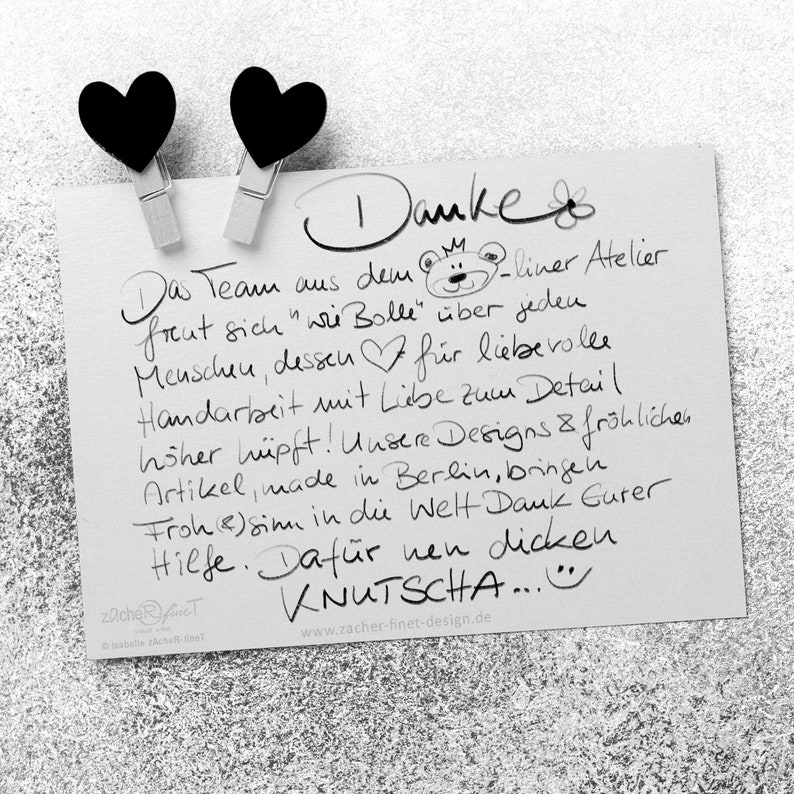 Danke
Das Team aus dem -liner Atelier
freut sich "wie Bolle" über jeden
Menschen, dessen ♡ für liebevolle
Handarbeit mit Liebe zum Detail
höher hüpft! Unsere Designs & fröhlichen
Artikel, made in Berlin, bringen
Froh(&)sinn in die Welt Dank Eurer
Hilfe. Dafür nen dicken
KNUTSCHA...
zAcheR-fineT
© Isabelle zAcheR-fineT
www.zacher-finet-design.de